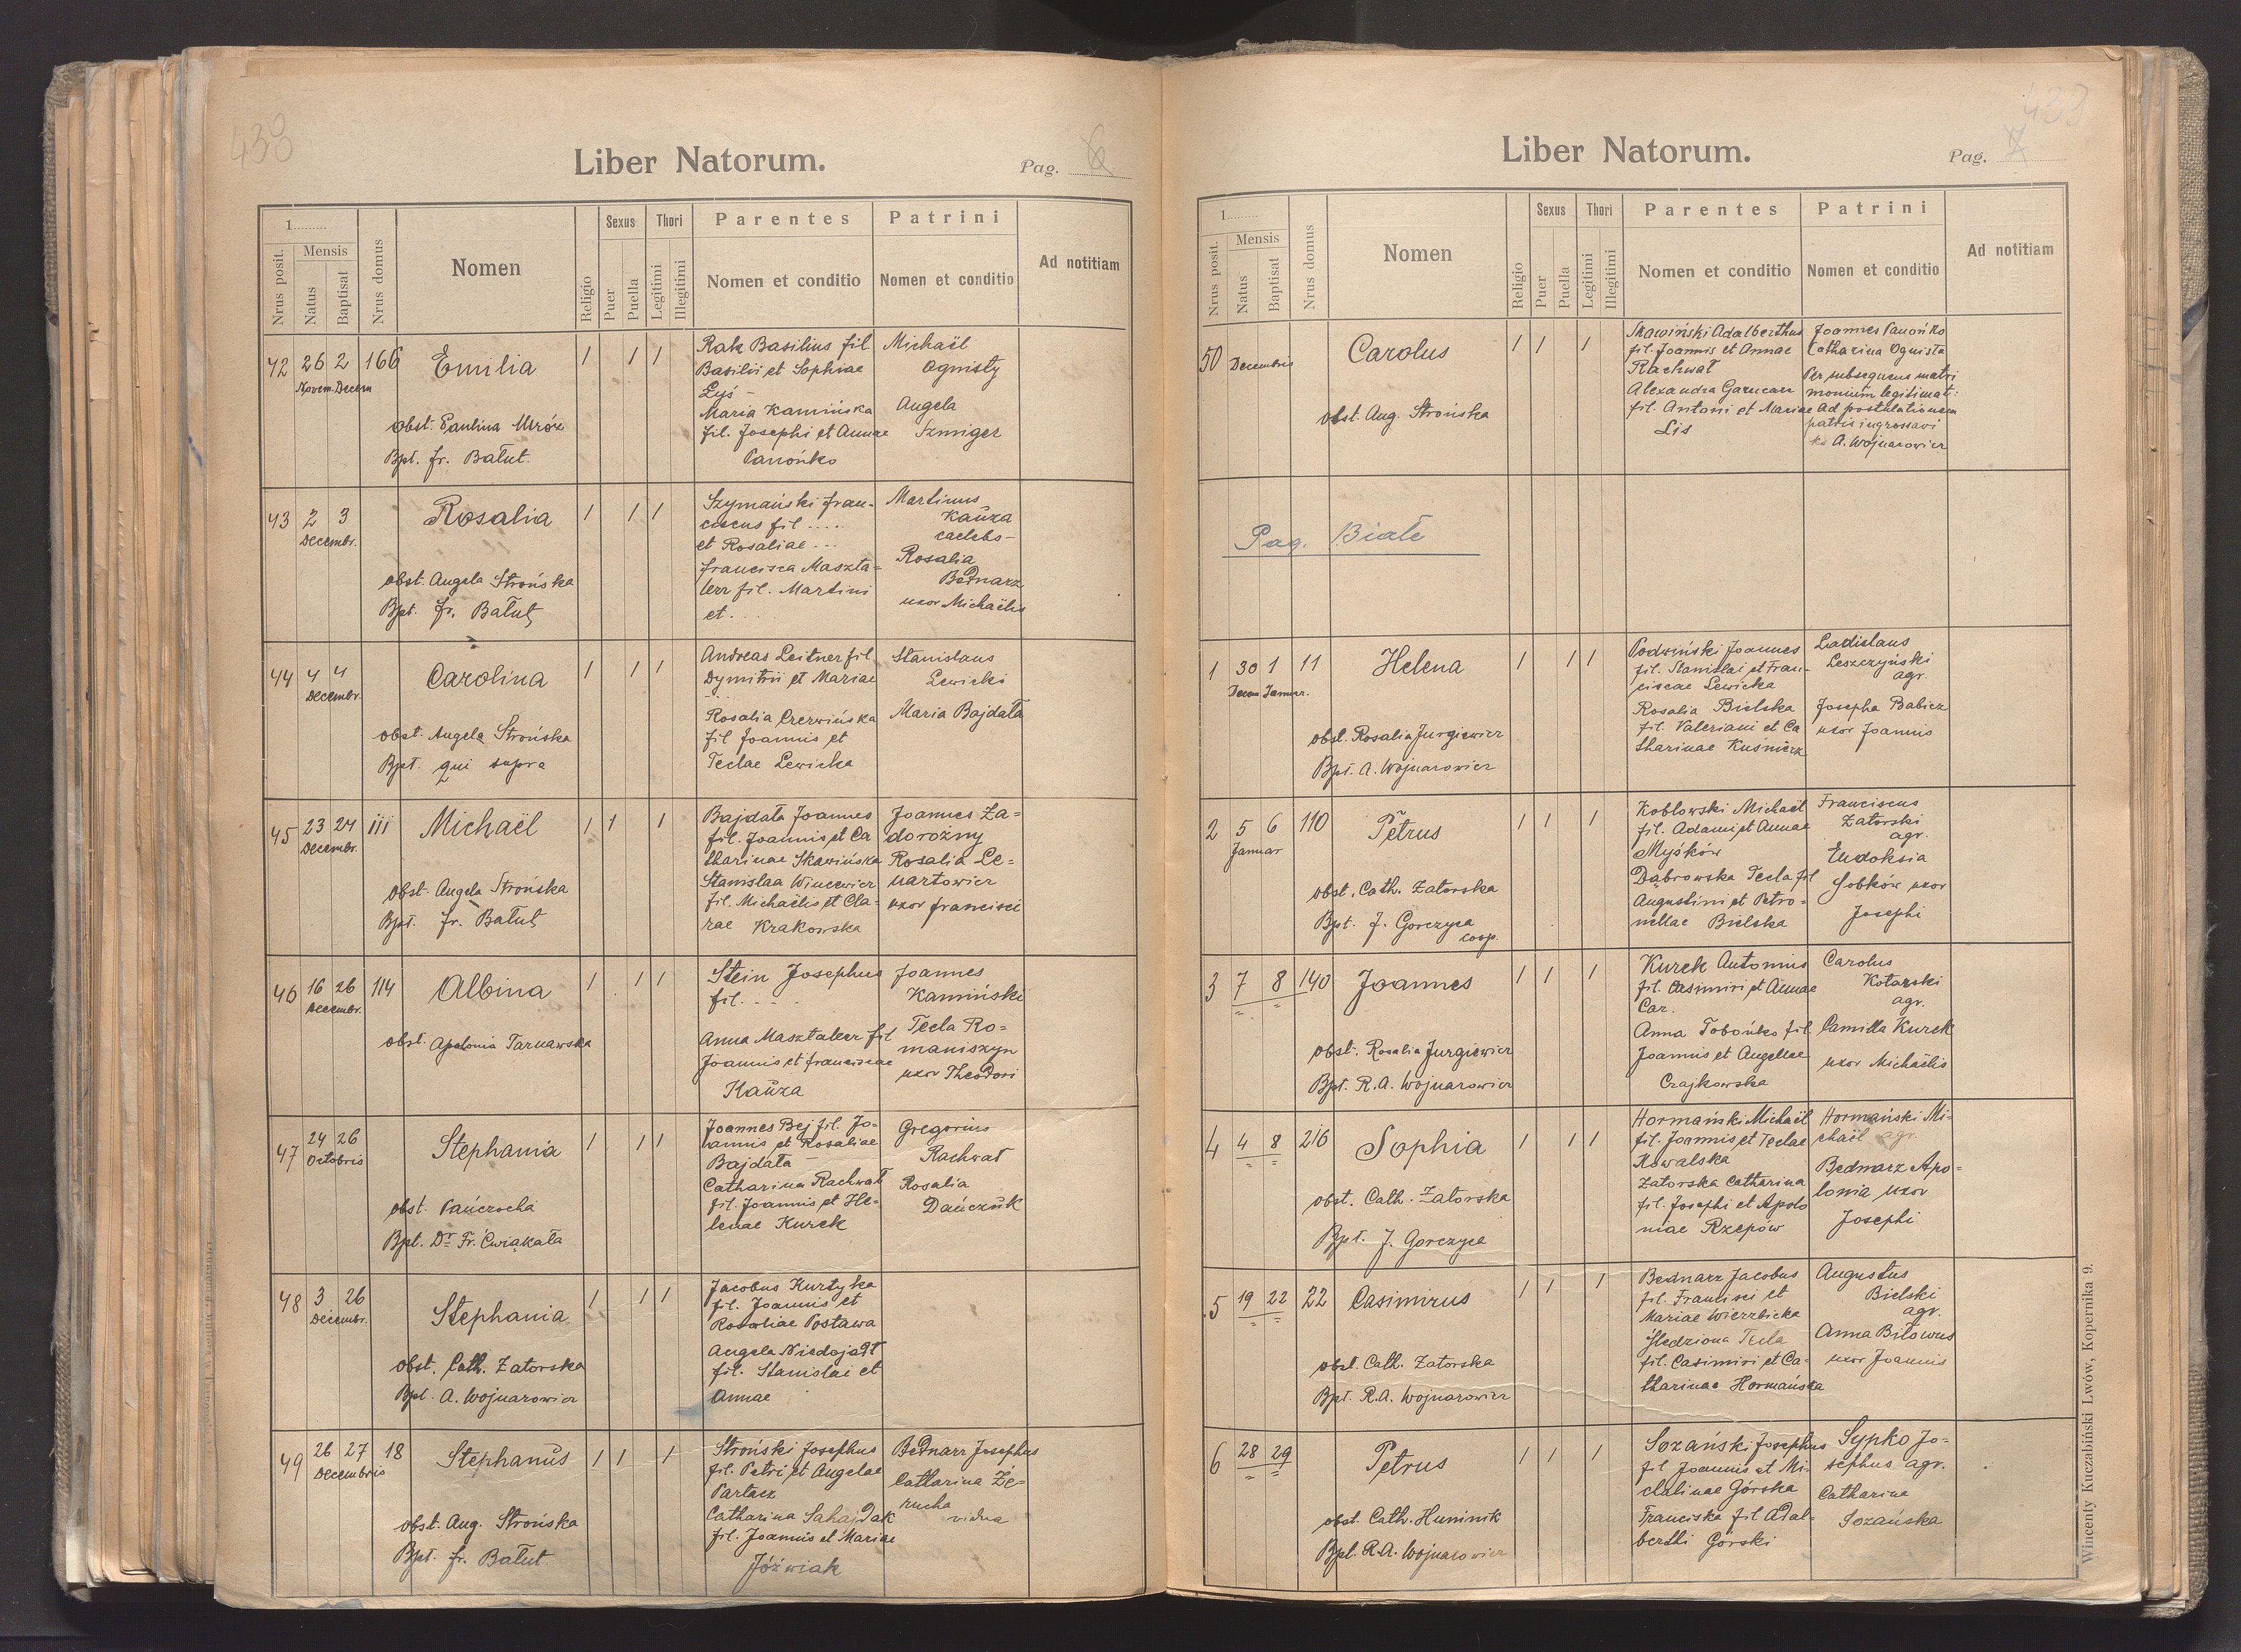 438
Liber Natorum.
Pag. 6
1.........
Nrus posit.
Mensis
Natus
Baptisat
Nrus domus
Nomen
Religio
Sexus
Puer
Puella
Thori
Legitimi
Illegitimi
Parentes
Nomen et conditio
Patrini
Nomen et conditio
Ad notitiam
42 26 2 166 Emilia 1 1 1
Novem. Decem
obst. Paulina Mróz
Bpt. fr. Bałut.
Rak Basilius fil
Basilii et Sophiae
Lyś -
Maria Kamińska
fil. Josephi et Annae
Panońko
Michaël
Ognisty
Angela
Szmigez
43 2 3 Rosalia 1 1 1
Decembr.
obst. Angela Strońska
Bpt. fr. Bałut
Szymański fran-
ciscus fil ....
et Rosaliae ...
francisca Maszta-
lerz fil. Martini
et ....
Martinus
Kauza
caelebs -
Rosalia
Bednarz
uxor Michaëlis
44 4 4 Carolina 1 1 1
Decembr.
obst. Angela Strońska
Bpt. qui supra
Andreas Leitner fil
Dymitrii et Mariae
Rosalia Czerwińska
fil Joannis et
Teclae Lewicka
Stanislaus
Lewicki
Maria Bajdała
45 23 24 111 Michaël 1 1 1
Decembr.
obst. Angela Strońska
Bpt. fr. Bałut
Bajdała Joannes
fil. Joannis et Ca
tharinae Skawińska
Stanislaa Wincewicz
fil. Michaëlis et Cla-
rae Krakowska
Joannes Za-
dorożny
Rosalia Le-
nartowicz
uxor francisci
46 16 26 114 Albina 1 1 1
Decembr.
obst. Apolonia Tarnawska
Stein Josephus
fil. ....
Anna Masztalerz fil
Joannis et franciscae
Kauza
Joannes
Kamiński
Tecla Ro-
maniszyn
uxor Theodori
47 24 26 Stephania 1 1 1
Octobris
obst. Pańczocha
Bpt. Dr Fr. Ćwiąkała
Joannes Bej fil. Jo-
annis et Rosaliae
Bajdała
Catharina Rachwał
fil. Joannis et He-
lenae Kurek
Gregorius
Rachwał
Rosalia
Dańczuk
48 3 26 Stephania 1 1 1
Decembr.
obst. Cath. Zatorska
Bpt. A. Wojnarowicz
Jacobus Kurtyka
fil. Joannis et
Rosaliae Postawa
Angela Niedojadł
fil. Stanislai et
Annae
49 26 27 18 Stephanus 1 1 1
Decembris
obst. Aug. Strońska
Bpt. fr. Bałut.
Stroński Josephus
fil. Petri et Angelae
Partacz
Catharina Sahajdak
fil. Joannis et Mariae
Jóźwiak
Bednarz Josephus
Catharina Że-
rucha
vidua
Liber Natorum.
Pag.
1.........
Nrus posit.
Mensis
Natus
Baptisat
Nrus domus
Nomen
Religio
Sexus
Puer
Puella
Thori
Legitimi
Illegitimi
Parentes
Nomen et conditio
Patrini
Nomen et conditio
Ad notitiam
50 Decembris Carolus 1 1 1
obst. Aug. Strońska
Skawiński Adalberthus
fil. Joannis et Annae
Rachwał
Alexandra Garncarz
fil. Antoni et Mariae
Lis
Joannes Panońko
Catharina Ognista
Per subsequens matri
monium legitimati:
Ad postulationem
patris ingrossavi
ks A. Wojnarowicz
Pag. Białe
1 30 1 11 Helena 1 1 1
Decem Januar.
obst. Rosalia Jurgiewicz
Bpt. A. Wojnarowicz
Podwiński Joannes
fil. Stanislai et Fran-
ciscae Lewicka
Rosalia Bielska
fil. Valeriani et Ca
tharinae Kuśnierz
Ladislaus
Leszczyński
agr.
Josepha Babicz
uxor Joannis
2 5 6 110 Petrus 1 1 1
Januar
obst. Cath. Zatorska
Bpt. J. Gorczyca
coop.
Kobłowski Michaël
fil. Adami et Annae
Myśków
Dąbrowska Tecla fil
Augustini et Petro-
nellae Bielska
Franciscus
Zatorski
agr.
Eudoksia
Sobków uxor
Josephi
3 7 8 140 Joannes 1 1 1
obst. Rosalia Jurgiewicz
Bpt. R. A. Wojnarowicz
Kurek Antonius
fil. Casimiri et Annae
Car.
Anna Tobońko fil.
Joannis et Angelae
Czajkowska
Carolus
Kotarski
agr.
Camilla Kurek
uxor Michaëlis
4 4 8 216 Sophia 1 1 1
obst. Cath. Zatorska
Bpt. J. Gorczyca
Hormański Michaël
fil. Joannis et Teclae
Kowalska
Zatorska Catharina
fil. Josephi et Apolo
niae Rzepów
Hormański Mi-
chaël agr.
Bednarz Apo-
lonia uxor
Josephi
5 19 22 22 Casimirus 1 1 1
obst. Cath. Zatorska
Bpt. R.A. Wojnarowicz
Bednarz Jacobus
fil. Francisci et
Mariae Wierzbicka
Śledziona Tecla
fil. Casimiri et Ca-
tharinae Hormańska
Augustus
Bielski
agr.
Anna Biłowus
uxor Joannis
6 28 29 Petrus 1 1 1
obst. Cath. Huminik
Bpt. R.A. Wojnarowicz
Sozański Josephus
fil Joannis et Mi-
chalinae Górska
Franciska fil Adal-
berthi Górski
Sypko Jo-
sephus agr.
Catharina
Sozańska
Wincenty Kuczabiński Lwów, Kopernika 9.